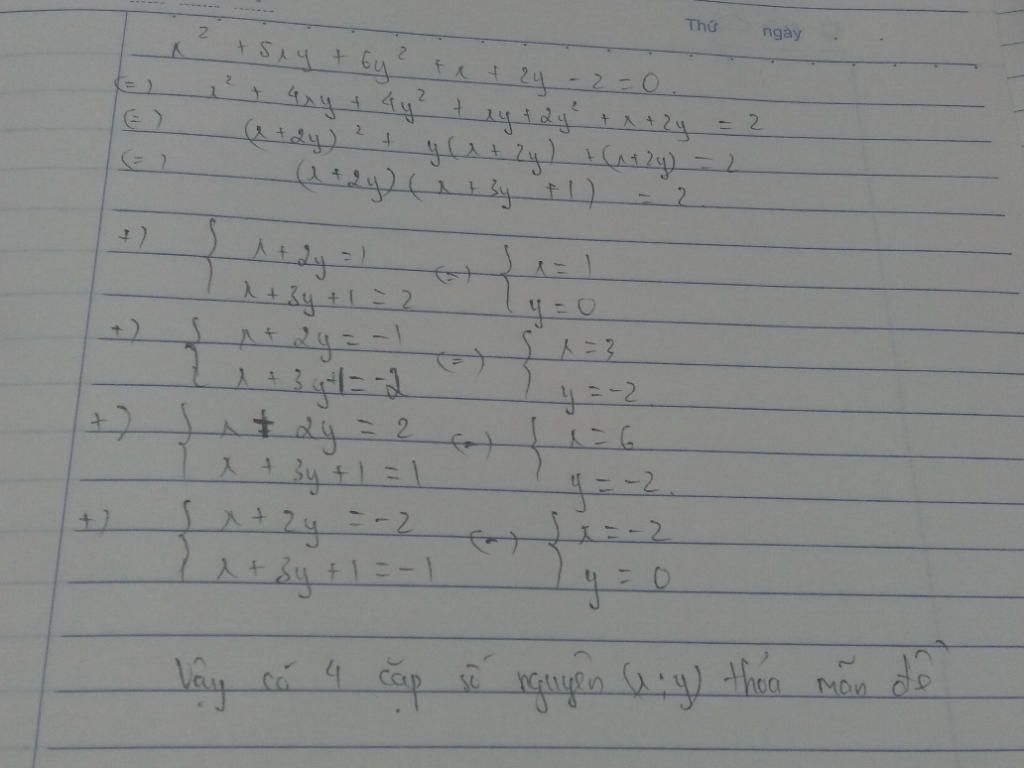 Thứ ngày
x² + 5xy + 6y² + x + 2y - 2 = 0.
(=) x² + 4xy + 4y² + xy + 2y² + x + 2y = 2
(=) (x + 2y)² + y(x + 2y) + (x + 2y) = 2
(=) (x + 2y)(x + 3y + 1) = 2
+) { x + 2y = 1 (=) { x = 1
x + 3y + 1 = 2 y = 0
+) { x + 2y = -1 (=) { x = 3
x + 3y + 1 = -2 y = -2
+) { x + 2y = 2 (=) { x = 6
x + 3y + 1 = 1 y = -2.
+) { x + 2y = -2 (=) { x = -2
x + 3y + 1 = -1 y = 0
Vậy có 4 cặp số nguyên (x ; y) thỏa mãn đề